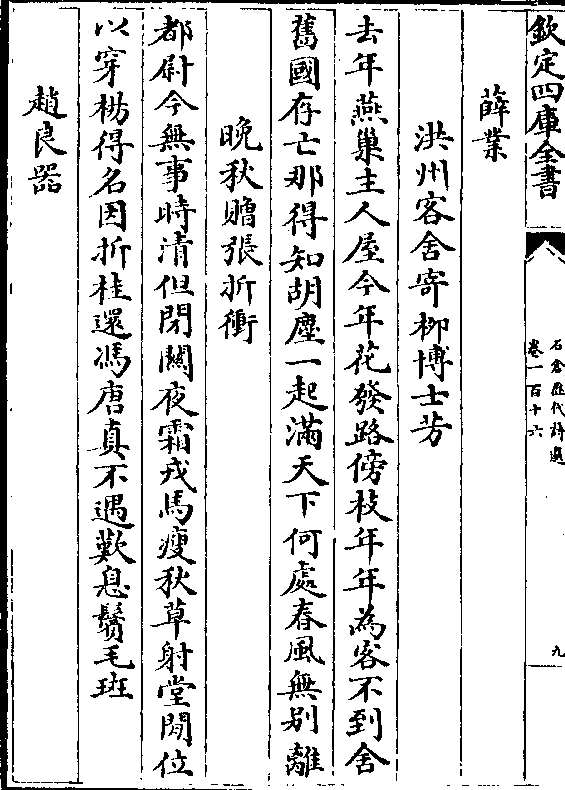 欽定四庫全書
石倉歷代詩選
卷一百十六
九
薛業
洪州客舍寄柳博士芳
去年燕巢主人屋今年花發路傍枝年年為客不到舍
舊國存亡那得知胡塵一起滿天下何處春風無別離
晚秋贈張折衝
都尉今無事時清但閉關夜霜戎馬瘦秋草射堂閒位
以穿楊得名因折桂還馮唐真不遇歎息鬢毛斑
趙良器